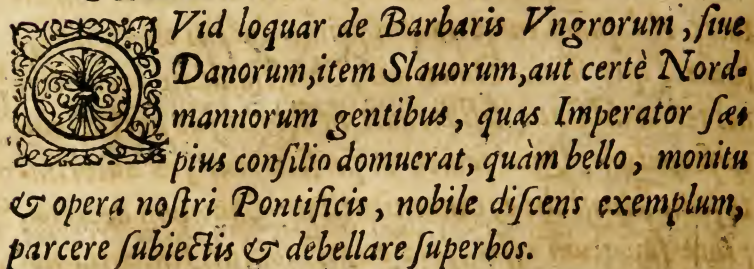 QVid loquar de Barbaris Vngrorum, ſiue
Danorum, item Slauorum, aut certè Nord-
mannorum gentibus, quas Imperator ſæ-
pius conſilio domuerat, quàm bello, monitu
& opera noſtri Pontificis, nobile diſcens exemplum,
parcere ſubiectis & debellare ſuperbos.